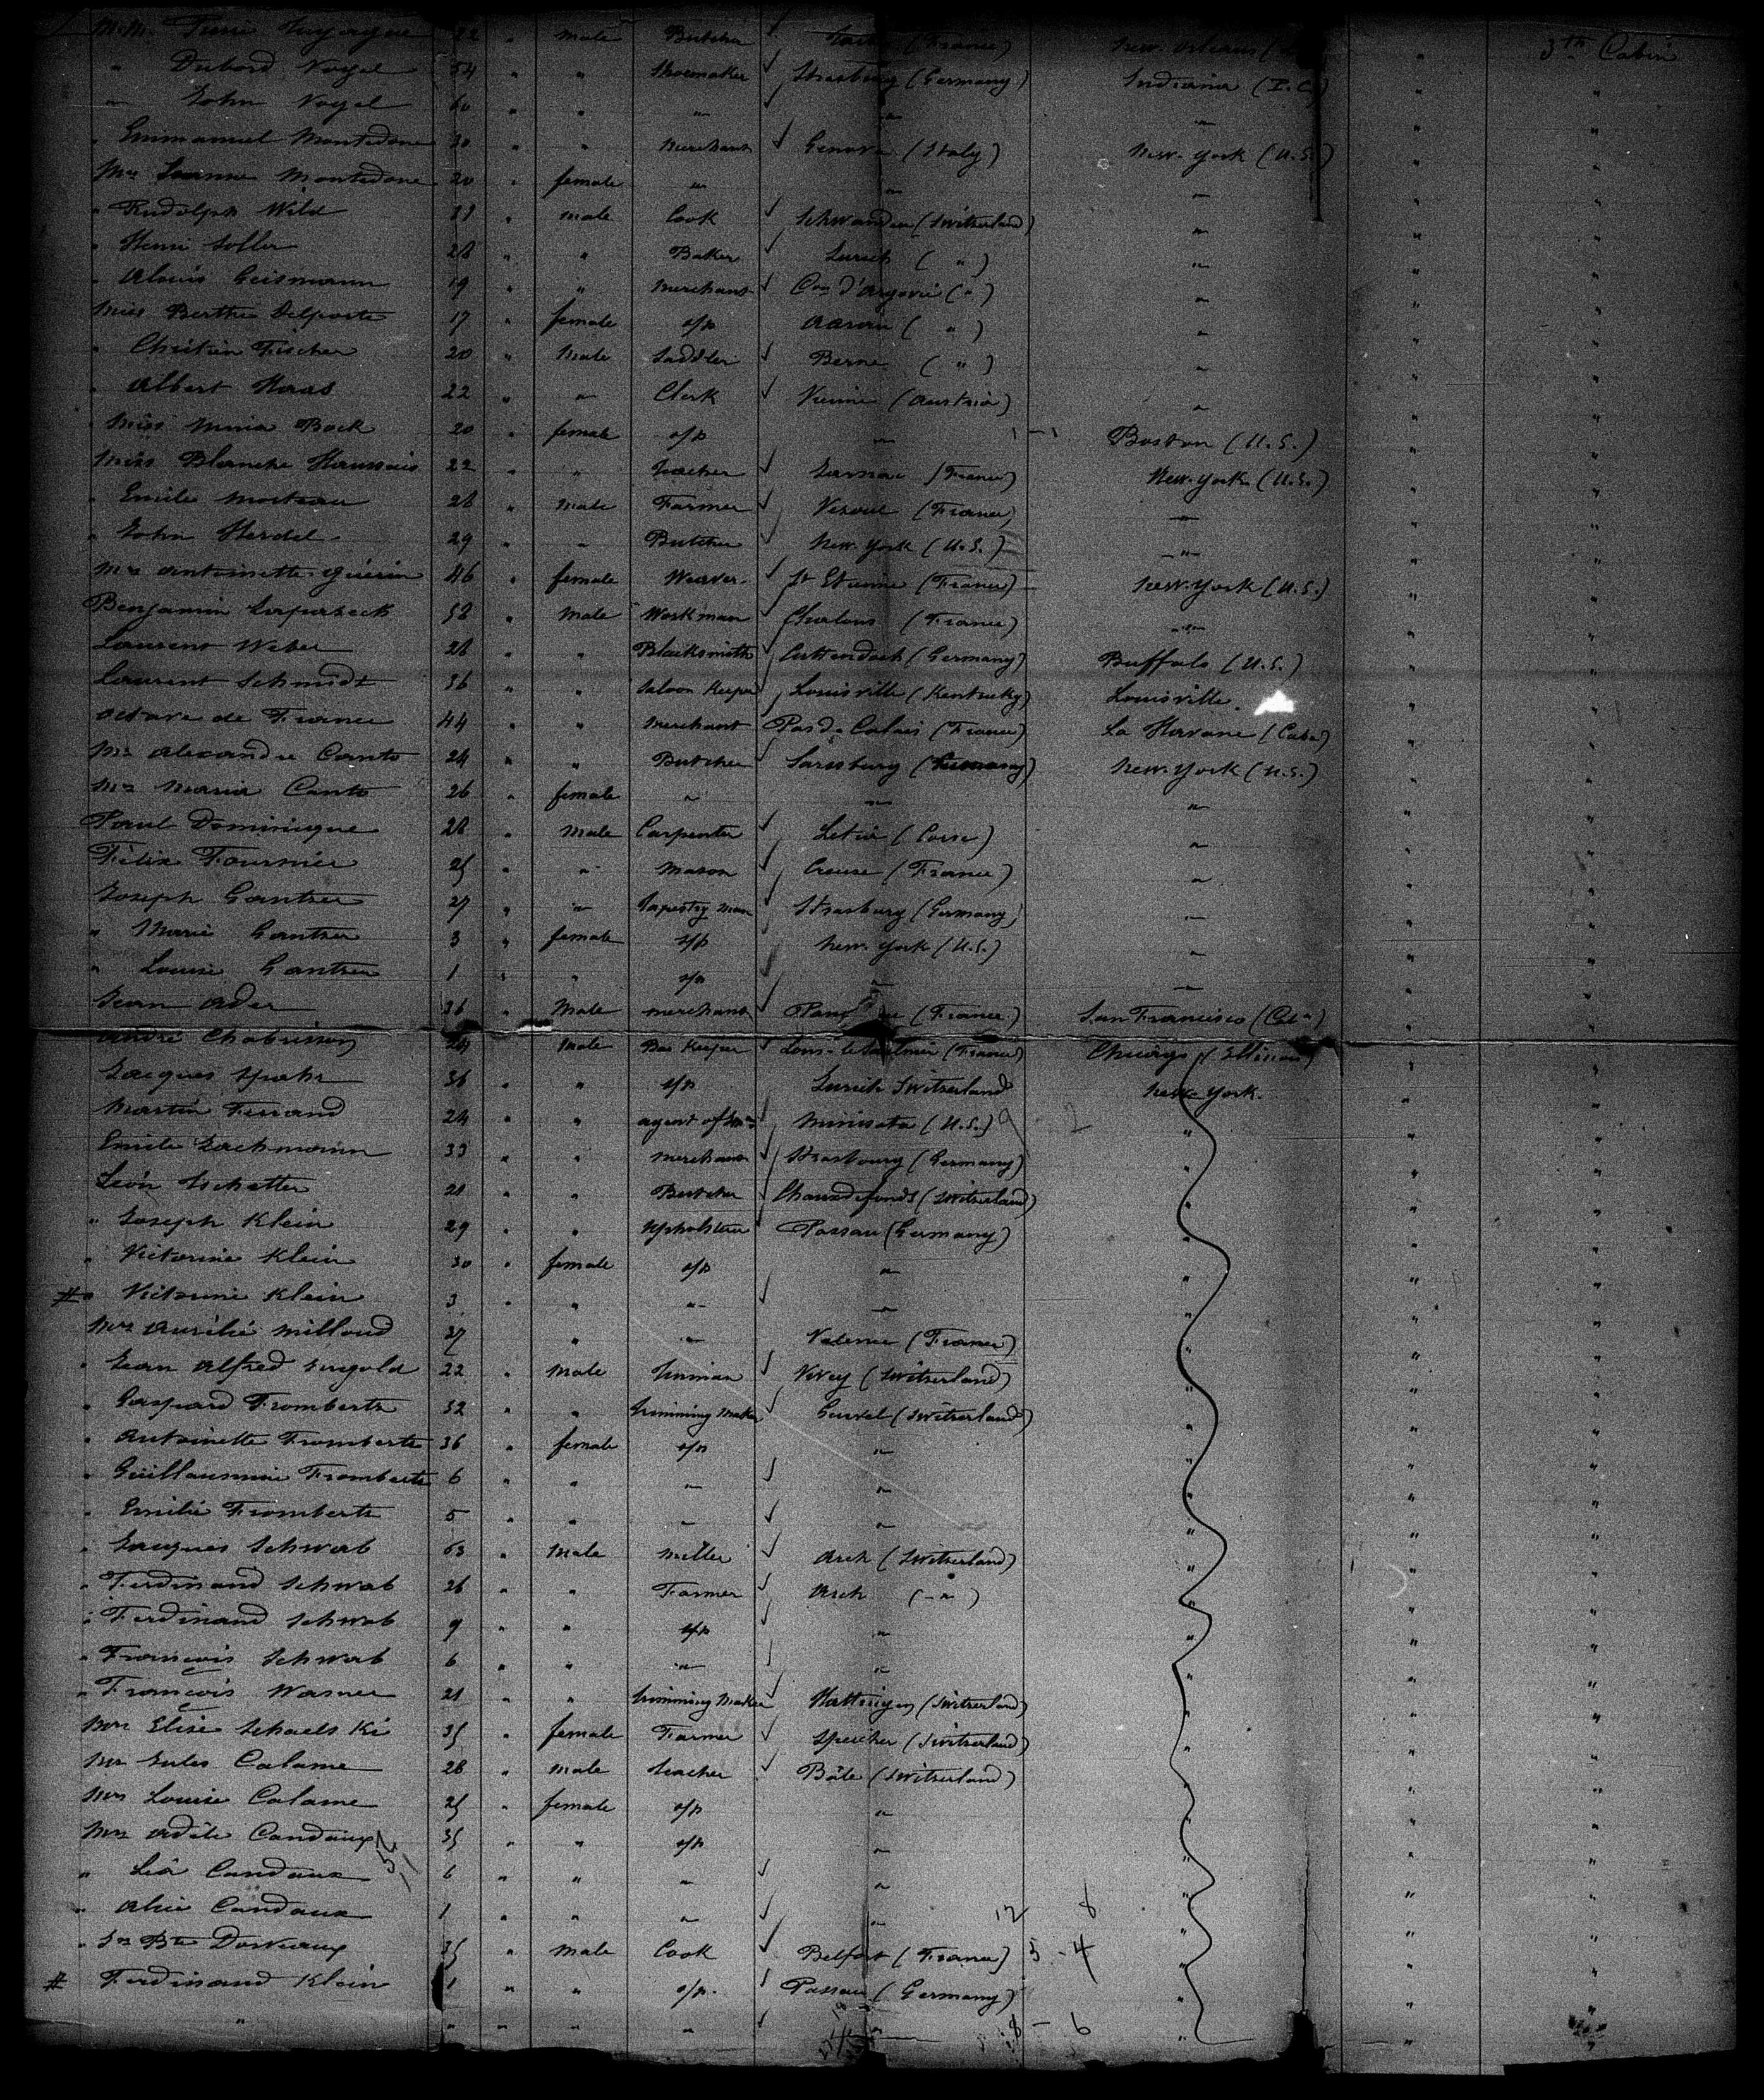 M.M. male Butcher (France) New-Orleans 3th Cabin
" Vogel 54 " " Shoemaker Strasburg (Germany) Indiana " "
" John Vogel 60 " " " " " " "
" Emmanuel Montedone 30 " " Merchant Genova (Italy) New-York (U.S.) " "
Mrs Montedone 20 " female " " " " "
" Rudolph Wild " male Cook Schwanden (Switzerland) " " "
" Henri 28 " " Baker Zurich ( " ) " " "
" Geismann 19 " " Merchant Con d'Argovie ( " ) " " "
Miss Berthe Delporte 17 " female o/p Aarau ( " ) " " "
" Fischer 20 " Male Saddler Berne ( " ) " " "
" Albert Haas 22 " " Clerk Vienne (Austria) " " "
" Miss Maria Bock 20 " female o/p " Boston (U.S.) " "
Miss Blanche 22 " " Teacher (France) New-York (U.S.) " "
" Emile 28 " Male Farmer Vesoul (France) " " "
" John Herdel 29 " " Butcher New-York (U.S.) " " "
Mrs Antoinette Guérin 46 " female Weaver St Etienne (France) New-York (U.S.) " "
Benjamin 52 " Male Workman Chalons (France) " " "
Laurent Weber 28 " " Blacksmith (Germany) Buffalo (U.S.) " "
Laurent Schmidt 36 " " Saloon Keeper Louisville (Kentucky) Louisville. " "
Octave de France 44 " " Merchant Pas de Calais (France) La Havane (Cuba) " "
Mr Alexandre Canto 24 " " Butcher (Germany) New-York (U.S.) " "
Mrs Maria Canto 26 " female " " " " "
Paul Dominique 28 " Male Carpenter (Corse) " " "
Félix Fournier 25 " " Mason Creuse (France) " " "
Joseph Gantzer 27 " " Tapestry Man Strasburg (Germany) " " "
" Marie Gantzer 3 " female o/p New-York (U.S.) " " "
" Louise Gantzer 1 " " o/p " " " "
Jean Ader 36 " Male Merchant (France) San Francisco " "
André Chabrisson " Male Bar Keeper Lons-le-Saulnier (France) Chicago (Illinois) " "
Jacques 36 " " o/p Zurich Switzerland New-York. " "
Martin Ferrand 24 " " agent of Minisota (U.S.) " " "
Emile 33 " " Merchant Strasbourg (Germany) " " "
Léon 21 " " Butcher Chauxdefonds (Switzerland) " " "
" Joseph Klein 29 " " Upholsterer Passau (Germany) " " "
" Victorine Klein 30 " female o/p " " " "
# " Victorine Klein 3 " " " " " " "
Mrs Aurélie Milloud 27 " " " Valence (France) " " "
" Jean Alfred 22 " Male Tinman Vevey (Switzerland) " " "
" Gaspard Frombertz 52 " " Trimming Maker (Switzerland) " " "
" Antoinette Frombertz 36 " female o/p " " " "
" Guillaumine Frombertz 6 " " " " " " "
" Emilie Frombertz 5 " " " " " " "
" Jacques Schwab 63 " Male Miller Arch (Switzerland) " " "
" Ferdinand Schwab 26 " " Farmer Arch ( " ) " " "
" Ferdinand Schwab 9 " " o/p " " " "
" François Schwab 6 " " " " " " "
" François Wasner 21 " " Trimming Maker (Switzerland) " " "
Mrs Elise 35 " female Farmer Speicher (Switzerland) " " "
Mr Jules Calame 28 " Male Teacher Bâle (Switzerland) " " "
Mrs Louise Calame 25 " female o/p " " " "
Mrs Adèle Candaux 35 " " o/p " " " "
" Léa Candaux 6 " " " " " " "
" Alice Candaux 1 " " " " 12 8 " " "
" Jn Bte 35 " Male Cook Belfort (France) 5 - 4 " " "
# " Ferdinand Klein 1 " " o/p. Passau (Germany) " " "
" " " " " " 8 - 6 " " "